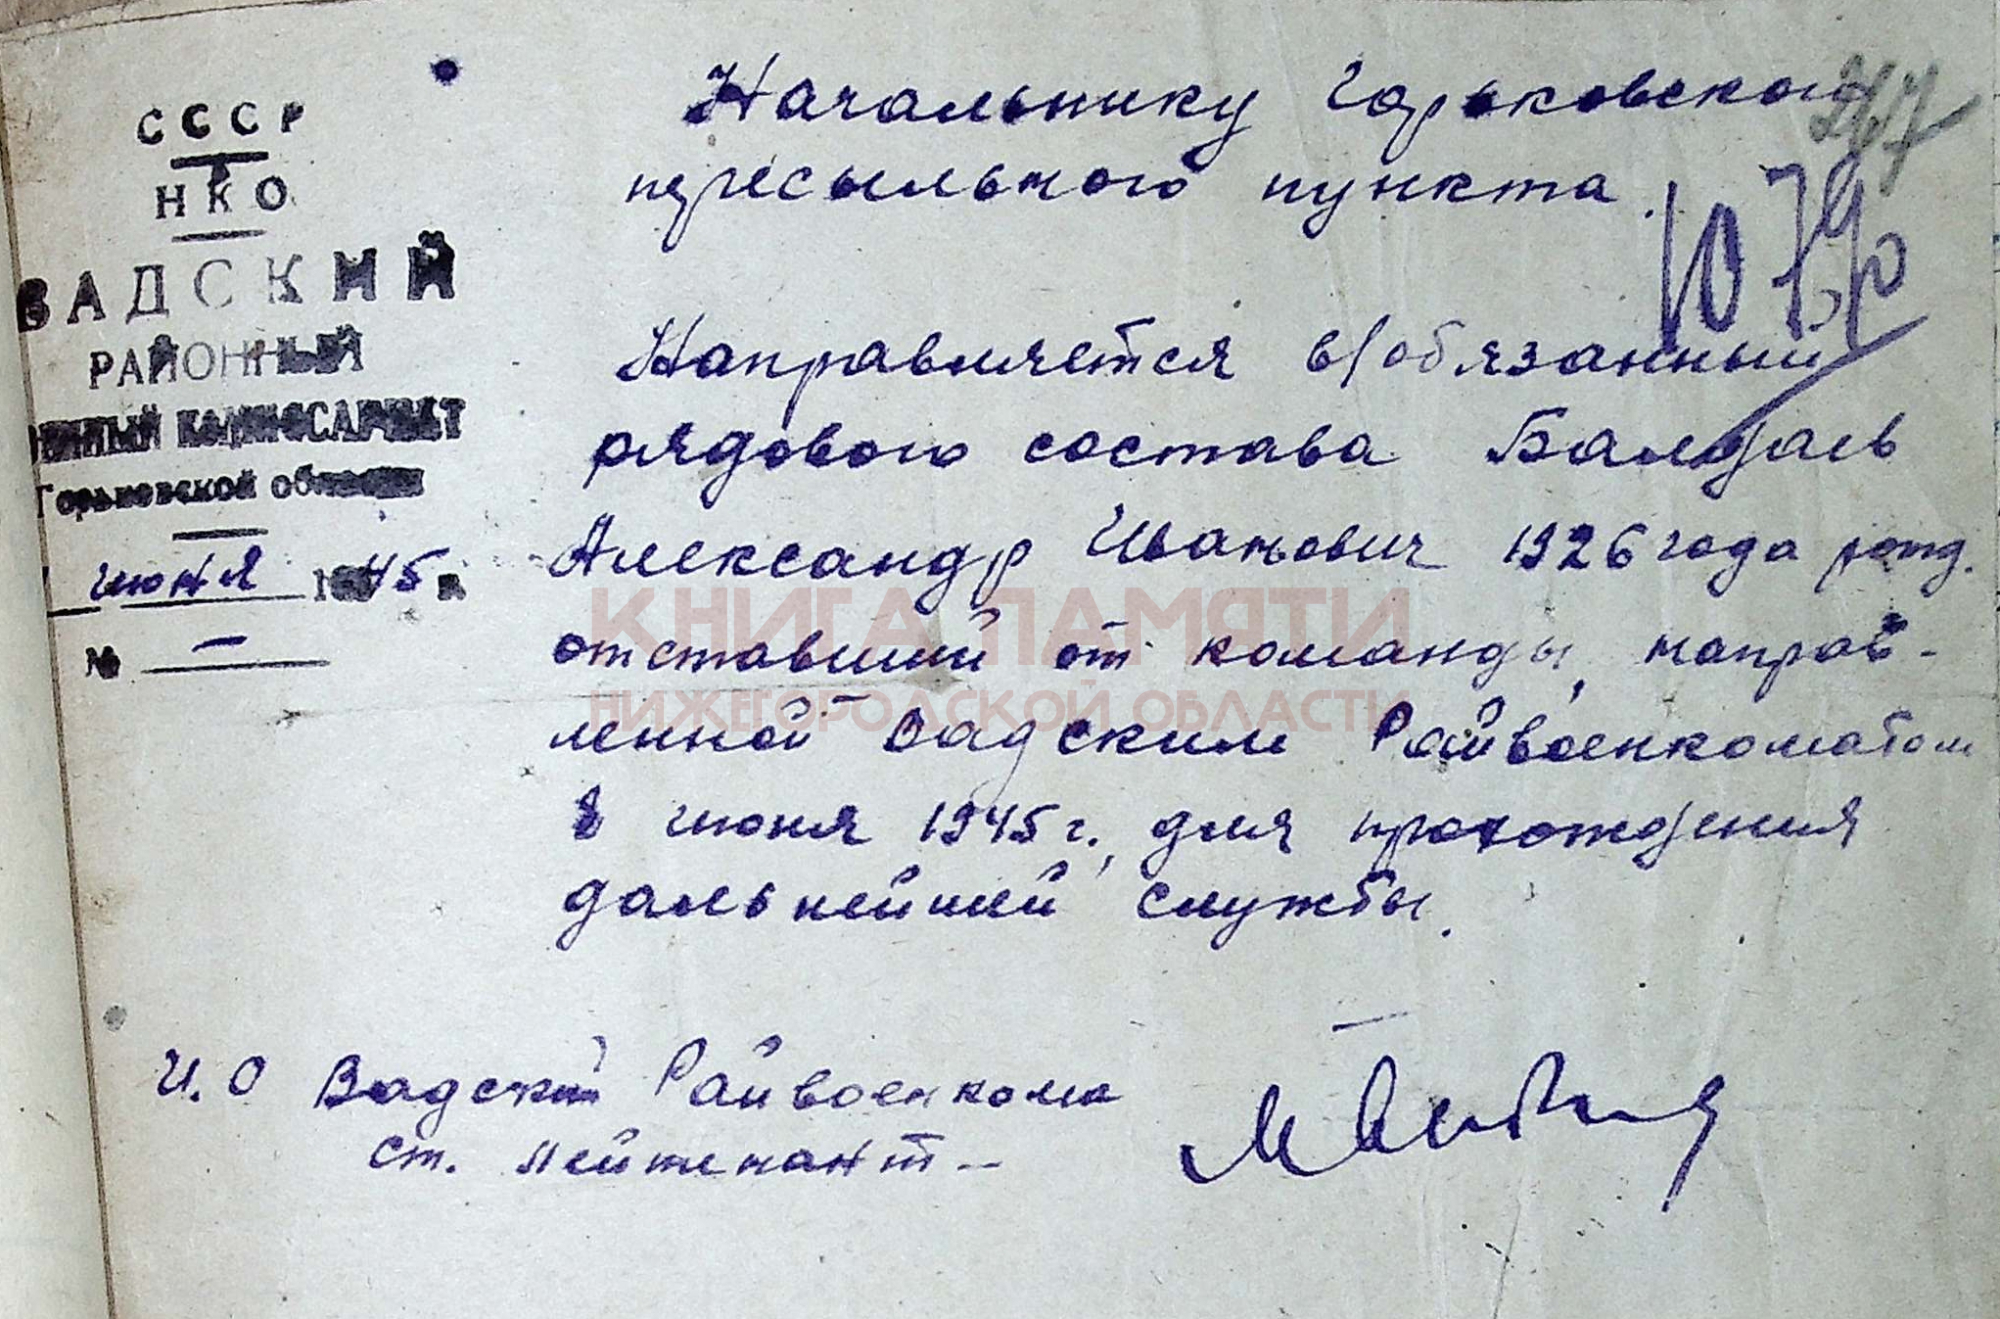 СССР
НКО
ВАДСКИЙ
РАЙОННЫЙ
ЕННЫЙ КОМИССАРИАТ
Горьковской области
июня 1945 г.
№ –
Начальнику Горьковского
пересыльного пункта.
267
Направляется в/обязанный
рядового состава Балдаев
Александр Иванович 1926 года рожд.
отставший от команды, направ-
ленной Вадским Райвоенкоматом
июня 1945 г., для прохождения
дальнейшей службы.
И.О Вадский Райвоенкома
Ст. лейтенант –
КНИГА ПАМЯТИ
НИЖЕГОРОДСКОЙ ОБЛАСТИ